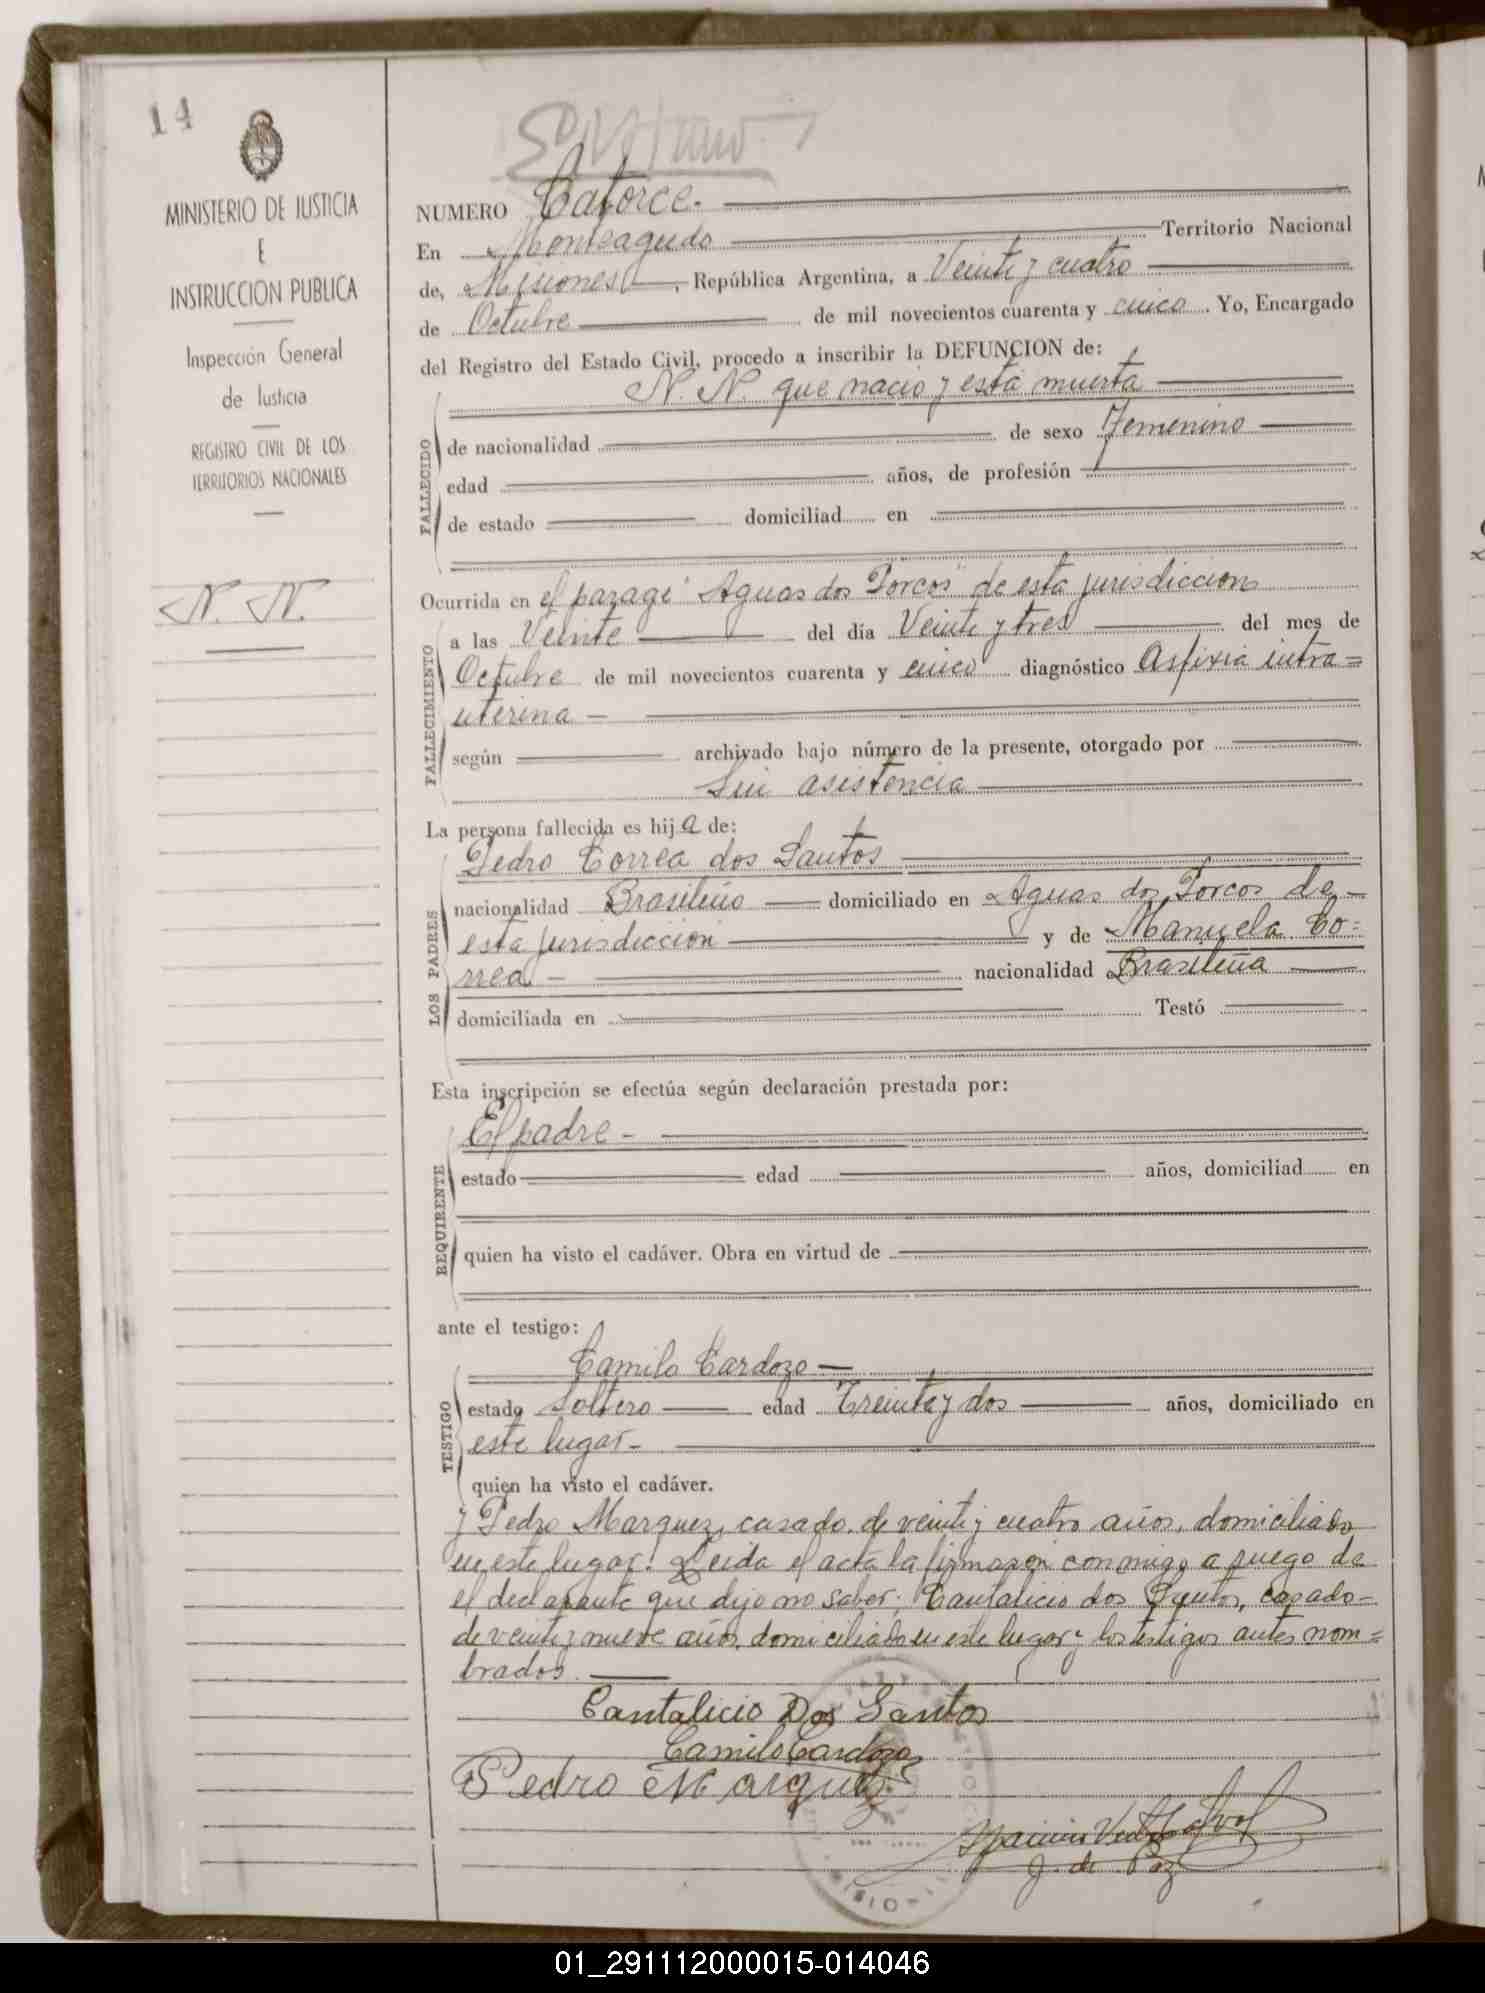 14
MINISTERIO DE JUSTICIA
E
INSTRUCCION PUBLICA
Inspección General
de Justicia
REGISTRO CIVIL DE LOS
TERRITORIOS NACIONALES
N. N.
NUMERO Catorce.
En Monteagudo Territorio Nacional
de, Misiones, República Argentina, a Veinte y cuatro
de Octubre de mil novecientos cuarenta y cinco. Yo, Encargado
del Registro del Estado Civil, procedo a inscribir la DEFUNCION de:
N. N. que nacio y está muerta
FALLECIDO
de nacionalidad de sexo Femenino
edad años, de profesión
de estado domiciliad en
Ocurrida en el parage "Aguas dos Porcos" de esta jurisdiccion
FALLECIMIENTO
a las Veinte del día Veinte y tres del mes de
Octubre de mil novecientos cuarenta y cinco diagnóstico Asfixia intra=
uterina -
según archivado bajo número de la presente, otorgado por
Sin asistencia
La persona fallecida es hija de:
Pedro Correa dos Santos
LOS PADRES
nacionalidad Brasileño domiciliado en Aguas dos Porcos de
esta jurisdiccion y de Manuela Co=
rrea - nacionalidad Brasileña
domiciliada en Testó
Esta inscripción se efectúa según declaración prestada por:
El padre -
REQUIRENTE
estado edad años, domiciliad en
quien ha visto el cadáver. Obra en virtud de
ante el testigo:
Camilo Cardozo
TESTIGO
estado Soltero edad Treinta y dos años, domiciliado en
este lugar -
quien ha visto el cadáver.
y Pedro Marquez, casado, de veinte y cuatro años, domiciliado
en este lugar. Leida el acta la firmaron conmigo a ruego de
el declarante que dijo no saber; Cantalicio dos Santos, casado-
de veinte y nueve años, domiciliado en este lugar y los testigos antes nom=
brados.
Cantalicio Dos Santos
Camilo Cardozo
Pedro Marquez
J. de Paz
01_291112000015-014046